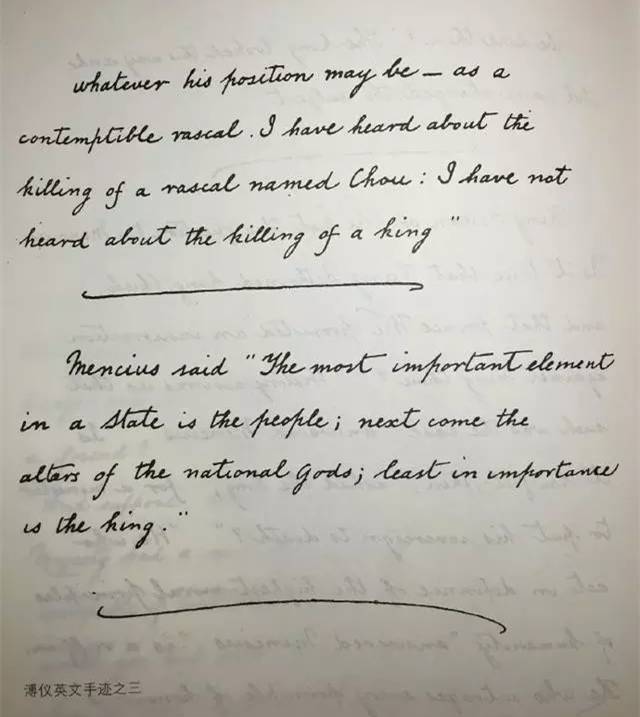 whatever his position may be — as a
contemptible rascal. I have heard about the
killing of a rascal named Chou: I have not
heard about the killing of a king"
Mencius said "The most important element
in a State is the people; next come the
altars of the national Gods; least in importance
is the king."
溥仪英文手迹之三